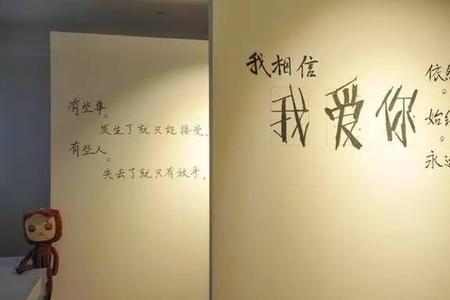 有些事。
发生了就只能接受。
有些人。
失去了就只有放手。
我相信
我爱你
依然
。
始终
。
永远